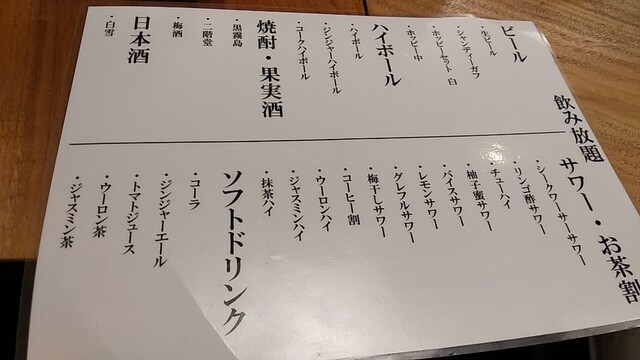 飲み放題
ビール
・生ビール
・シャンディーガフ
・ホッピーセット 白
・ホッピー中
ハイボール
・ハイボール
・ジンジャーハイボール
・コークハイボール
焼酎・果実酒
・黒霧島
・二階堂
・梅酒
日本酒
・白雪
サワー・お茶割
・シークワーサーサワー
・リンゴ酢サワー
・チューハイ
・柚子蜜サワー
・バイスサワー
・レモンサワー
・グレフルサワー
・梅干しサワー
・コーヒー割
・ウーロンハイ
・ジャスミンハイ
・抹茶ハイ
ソフトドリンク
・コーラ
・ジンジャーエール
・トマトジュース
・ウーロン茶
・ジャスミン茶